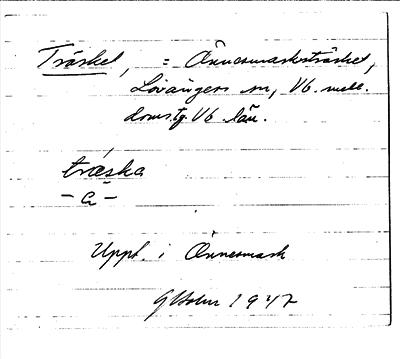 Träsket, = Ånnesmarksträsket,
Lövångers sn, Vb. mell.
doms.tg. Vb län.
träska
- a -
Uppt. i Ånnesmark
GHolm 1947